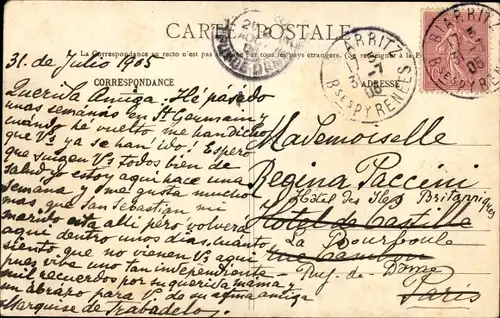 CARTE POSTALE
La Correspondance au recto n'est pas acceptée par tous les pays étrangers. (Se renseigner à la P
31. de Julio 1905
CORRESPONDANCE
ADRESSE
BIARRITZ
BSES PYRENÉES
BIARRITZ
BSES PYRENÉES
PUY DE DÔME
Querida Amiga. Hé pasado
unas semanas en St Germain y
cuándo he vuelto me han dicho
que Vs ya se han ido! Espero
que sigen Vs todos bien de
salud yo estoy aqui hace una
semana y me gusta mucho
mas que San Sebastian, mi
marido esta alli pero volverá
aqui dentro unos dias, cuánto
siento que no vienen Vs aqui
pues vive uno tan independiente
mil recuerdos por su querida mama y
un abrazo para V. de su atma antiga
Marquise de Trabadelo
Mademoiselle
Regina Paccini
Hôtel des Iles Britanniques
Hotel de Castille
La Bourboule
rue Cambon
Puy-de-Dôme
Paris